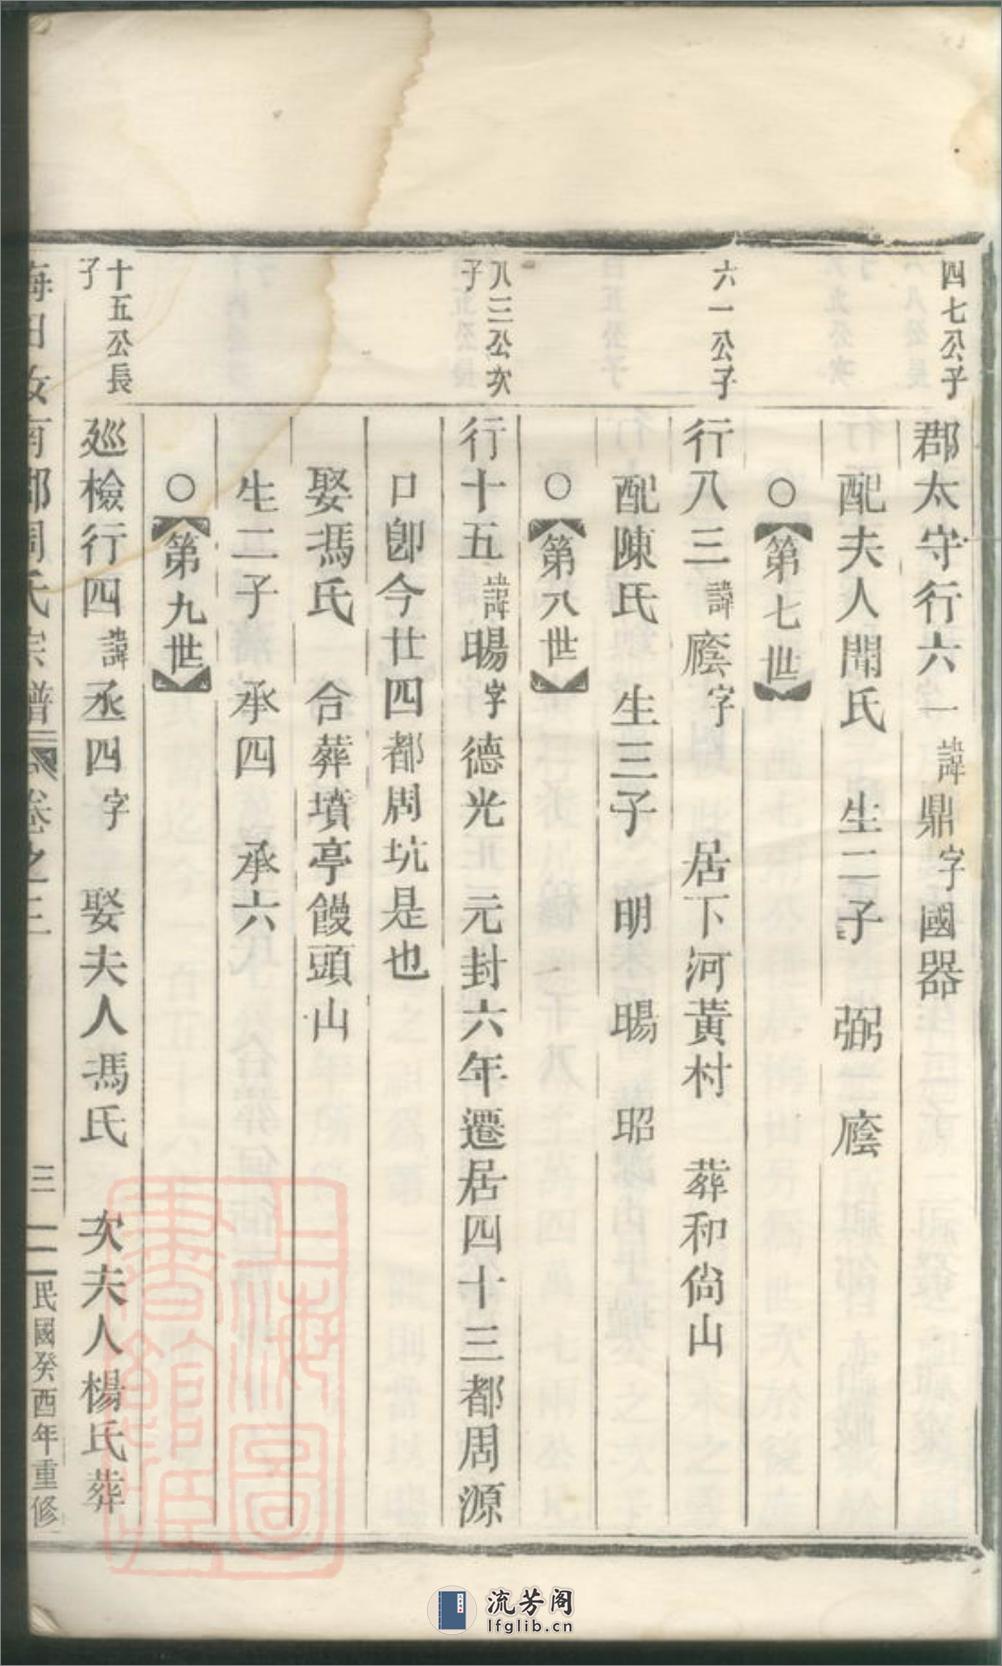 四七公子
郡太守行六一諱鼎字國器
配夫人聞氏 生二子 弼 廕
○【第七世】
六一公子
行八三諱廕字 居下河黃村 葬和尙山
配陳氏 生三子 明 暘 昭
○【第八世】
八三公次子
行十五諱暘字德光 元封六年遷居四十三都周源
口卽今廿四都周坑是也
娶馮氏 合葬墳亭饅頭山
生二子 承四 承六
○【第九世】
十五公長子
廵檢行四諱丞四字 娶夫人馮氏 次夫人楊氏葬
海田汝南郡周氏宗譜 卷之三 三 民國癸酉年重修
上海圖書館藏
流芳阁
lfglib.cn